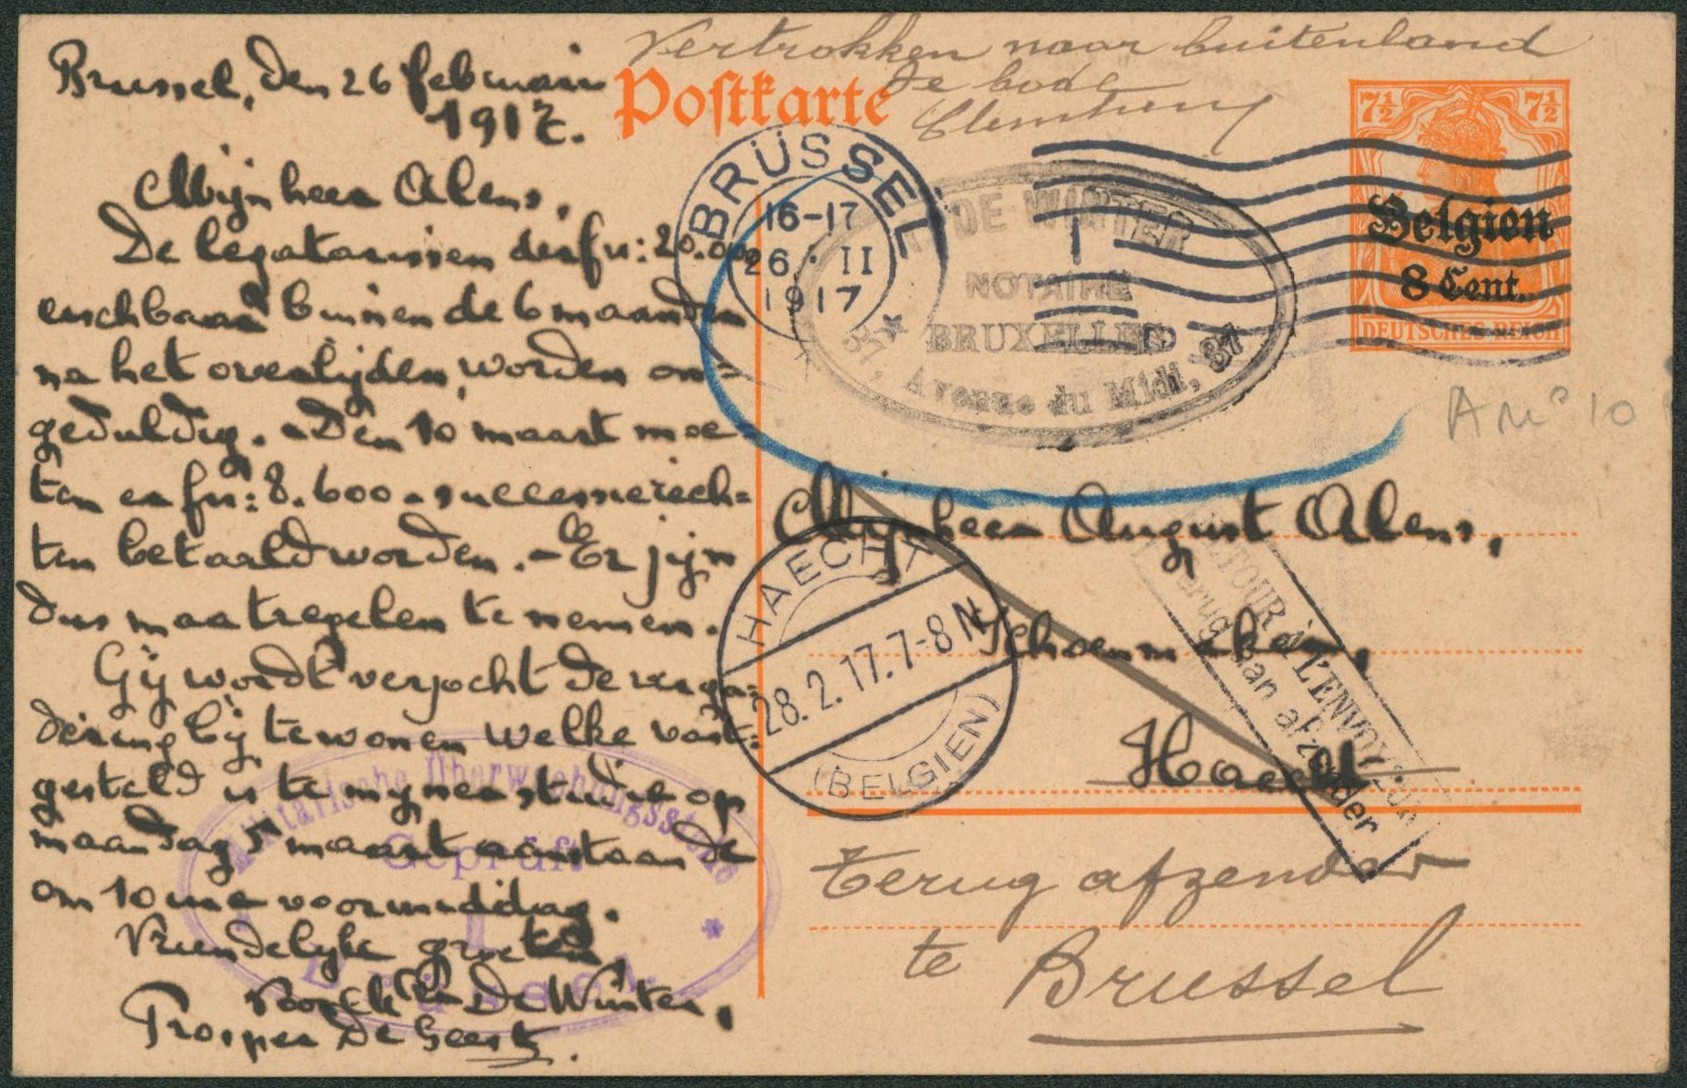 Brussel, den 26 februari
1917.
Mijnheer Alens,
De legatarissen der fr: 20.000
eischbaar binnen de 6 maanden
na het overlijden, worden on=
geduldig. - Den 10 maart moe-
ten er fr: 8.600 - successierech=
ten betaald worden. - Er zijn
dus maatregelen te nemen.
Gij wordt verzocht de verga=
dering bij te wonen welke vast=
gesteld is te mijner studie op
maandag 5 maart aanstaande
om 10 ure voormiddag.
Vriendelijke groeten,
Voor De Winter,
Prosper De Geest.
Militärische Überwachungsstelle
Geprüft
1
Brüssel
Vertrokken naar buitenland
de bode
Postkarte
BRÜSSEL
16-17
26. II
1917
DE WINTER
NOTAIRE
BRUXELLES
37, Avenue du Midi, 37
7½ 7½
Belgien
8 Cent.
DEUTSCHES REICH
A No 10
Mijnheer August Alens,
Schoenmaker,
Haecht
HAECHT
28.2.17.7-8 N
(BELGIEN)
RETOUR A L'ENVOYEUR
Terug aan afzender
Terug afzender
te Brussel